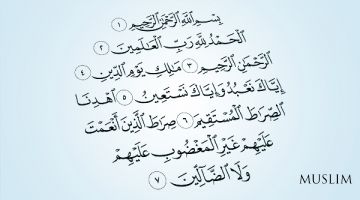 بِسْمِ اللَّهِ الرَّحْمَٰنِ الرَّحِيمِ ١
الْحَمْدُ لِلَّهِ رَبِّ الْعَالَمِينَ ٢
الرَّحْمَٰنِ الرَّحِيمِ ٣ مَالِكِ يَوْمِ الدِّينِ ٤
إِيَّاكَ نَعْبُدُ وَإِيَّاكَ نَسْتَعِينُ ٥ اهْدِنَا
الصِّرَاطَ الْمُسْتَقِيمَ ٦ صِرَاطَ الَّذِينَ أَنْعَمْتَ
عَلَيْهِمْ غَيْرِ الْمَغْضُوبِ عَلَيْهِمْ
وَلَا الضَّالِّينَ ٧
MUSLIM